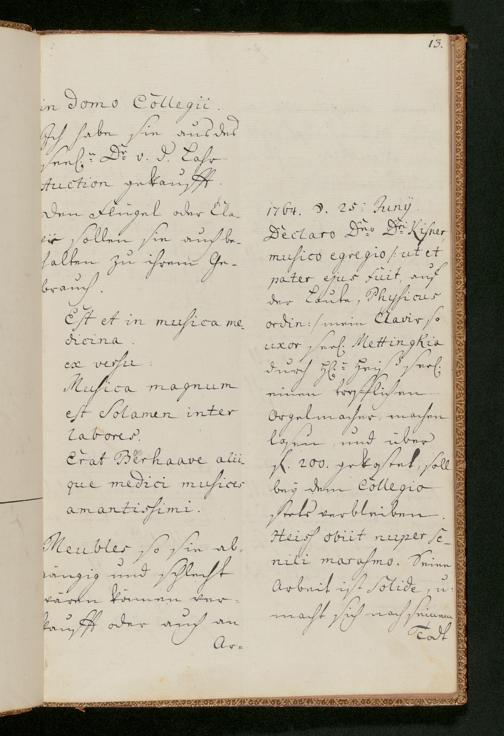 13.
in domo Collegii.
Ich habe sie aus des
seel. Dr. v. d. Lahr
Auction gekaufft.
Den Flügel oder Cla-
vir sollen sie auch be-
halten zu ihrem Ge-
brauch.
Est et in musica me-
dicina.
ex versu
Musica magnum
est Solamen inter
labores.
Erat Börhaave alii
que medici musices
amantissimi.
Meubles so sie ab-
gängig und schlecht
waren können ver-
kaufft oder auch an
Ar-
1764. d. 25: Junÿ
Declaro Dno Dri Kisner,
musico egregio /: ut et
pater ejus fuit, auf
der Laute, Physicus
ordin: / mein Clavir so
uxor seel. Mettingkia
durch H. Heiss seel.
einen trefflichen
Orgelmacher, machen
lassen, und über
fl. 200. gekostet, soll
bey dem Collegio
stets verbleiben.
Heiss obiit nuper se-
nili marasmo. Seine
Arbeit ist Solide u.
macht sich nach seinem
Todt